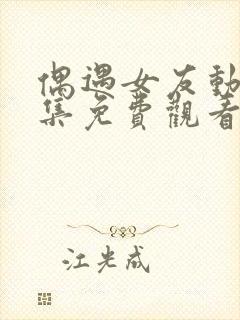 偶遇女友動
集免費觀看
江光成